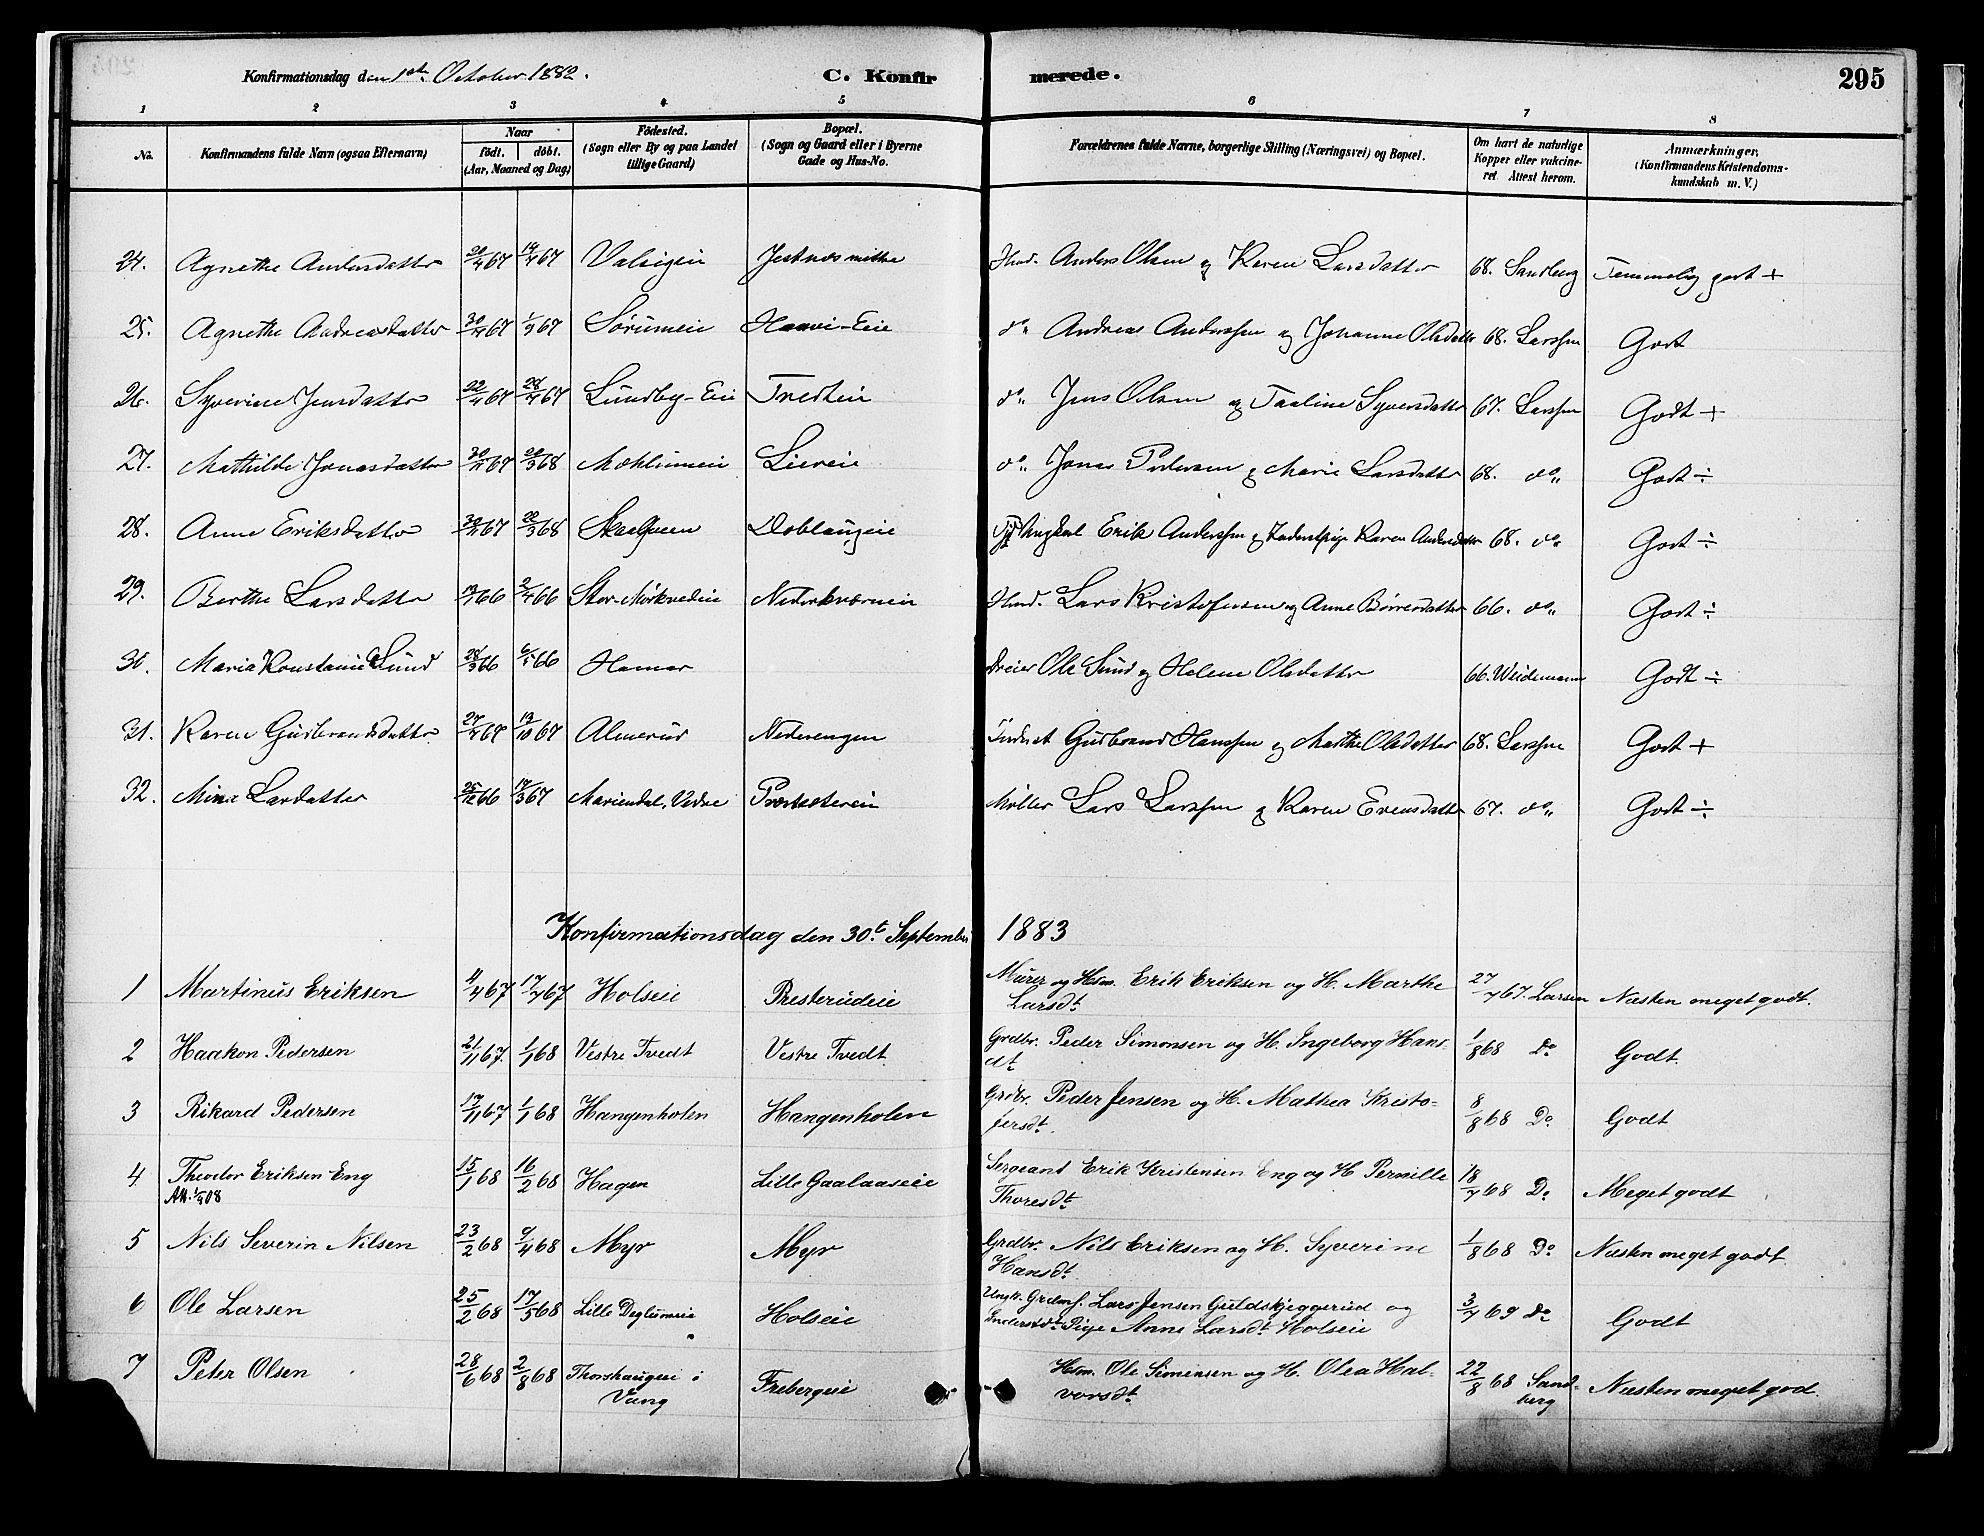 Konfirmationsdag den 1ste October 1882. C. Konfirmerede. 295
1 2 3 4 5 6 7 8
No. Konfirmandens fulde Navn (ogsaa Efternavn) Naar födt. döbt. (Aar, Maaned og Dag) Födested. (Sogn eller By og paa Landet tillige Gaard) Bopæl. (Sogn og Gaard eller i Byerne Gade og Hus-No. Forældrenes fulde Navne, borgerlige Stilling (Næringsvei) og Bopæl. Om havt de naturlige Kopper eller vakcineret Attest herom. Anmærkninger, (Konfirmandens Kristendomskundskab m. V.)
24. Agnethe Andersdatter 20/4 67 14/7 67 Valsigeie Jestnæs mittre Hmd. Anders Olsen og Karen Larsdatter 68. Sandberg Temmelig godt +
25. Agnethe Andreasdatter 67 1/9 67 Sørumeie Haavi-Eie do. Andreas Anderssen og Johanne Olsdatter 68. Larssen Godt
26. Syverine Jensdatter 22/4 67 28/7 67 Lundby-Eie Tvedteie do. Jens Olsen og Taaline Syversdatter 67. Larssen Godt +
27. Mathilde Jonasdatter 30/11 67 20/3 68 Mæhlumeie Liereie do. Jonas Pedersen og Marie Larsdatter 68. do. Godt ÷
28. Anne Eriksdatter 30/11 67 20/3 68 Doblaugeie Ungkarl Erik Anderssen og Karen Andersdatter 68. do. Godt ÷
29. Berthe Larsdatter 66 2/4 66 Stor-Mørkvedeie Nederkværneie Hmd. Lars Kristofersen og Anne Børresdatter 66. do. Godt ÷
30. Maria Konstanie Lund 28/3 66 6/5 66 Hamar Dreier Ole Lund og Helene Olsdatter 66. Weidemann Godt ÷
31. Karen Gudbrandsdatter 27/7 67 13/10 67 Almerud Nederengen Inderst Gudbrand Hanssen og Marthe Olsdatter 68. Larssen Godt +
32. Mina Larsdatter 25/12 66 17/3 67 Mariendal, Vedre Præstesætereie Møller Lars Larssen og Karen Evensdatter 67. do. Godt ÷
Konfirmationsdag den 30.t September 1883
1 Martinus Eriksen 4/4 67 17/7 67 Holseie Presterudeie Murer og Hsm. Erik Eriksen og H. Marthe Larsdt. 27/7 67. Larsen Næsten meget godt.
2 Haakon Pedersen 21/11 67. 1/1 68 Vestre Tvedt Vestre Tvedt. Grdbr. Peder Simonsen og H. Ingeborg Hansdt. 1/8 68 Do Godt.
3 Rikard Pedersen 17/11 67 1/1 68 Hangenholen Hangenholen Grdbr. Peder Jensen og H. Mathea Kristofersdt. 8/8 68 Do Godt
4. Theodor Eriksen Eng 15/1 68 16/2 68 Hagen Lille Gaalaaseie Sergeant Erik Kristensen Eng og H Pernille Thoresdt. 18/7 68 Do Meget godt
5 Nils Severin Nilsen 23/2 68 9/4 68 Myr Myr Grdbr. Nils Eriksen og H. Syverine Hansdt. 1/8 68 Do Næsten meget godt.
6 Ole Larsen 25/2 68 17/5 68 Lille Deglumeie Holseie Ungk. Grdmf. Lars Jensen Guldskjeggerud og Inderstdt. Pige Anne Larsdt. Holseie 3/7 69 do Godt
7 Peter Olsen 28/6 68 2/8 68 Thorshaugeie i Vang Frebergeie Hsm. Ole Simensen og H. Olea Halvorsdt. 22/8 68 Sandberg Næsten meget god.